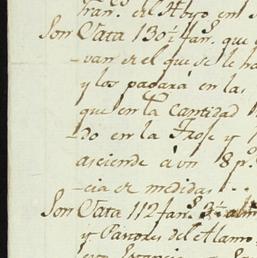 Fran.^co el Hoyo em
Son Cata 130½ fan.^s que
van es el que se le ha
y los pagará en las
que en tta Cantidad
-do en la Troje y
asciende á un 8 p.^r
-cia de medidas . .
Son Cata 112 fan.^s 3½ alm
y Partores del Alamo